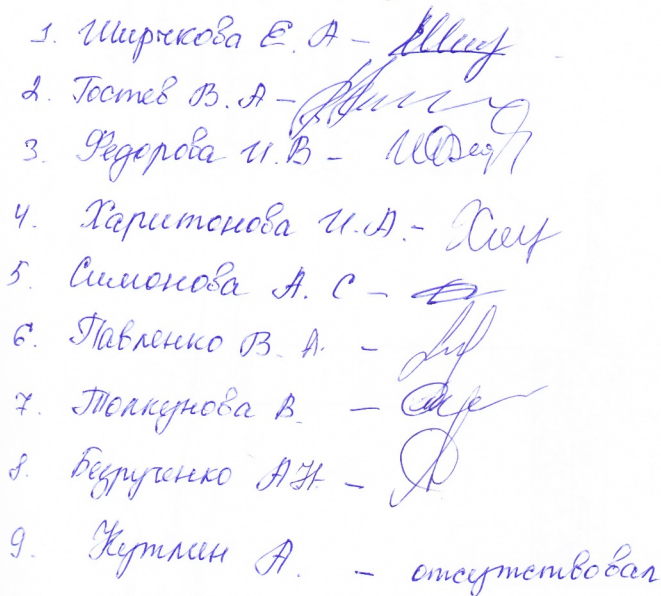 1. Ширчкова Е. А –
2. Гостев В. А –
3. Федорова И. В –
4. Харитонова И. А. –
5. Симонова А. С –
6. Павленко В. А. –
7. Толкунова В. –
8. Безрученко А Н. –
9. Кутлин А. – отсутствовал